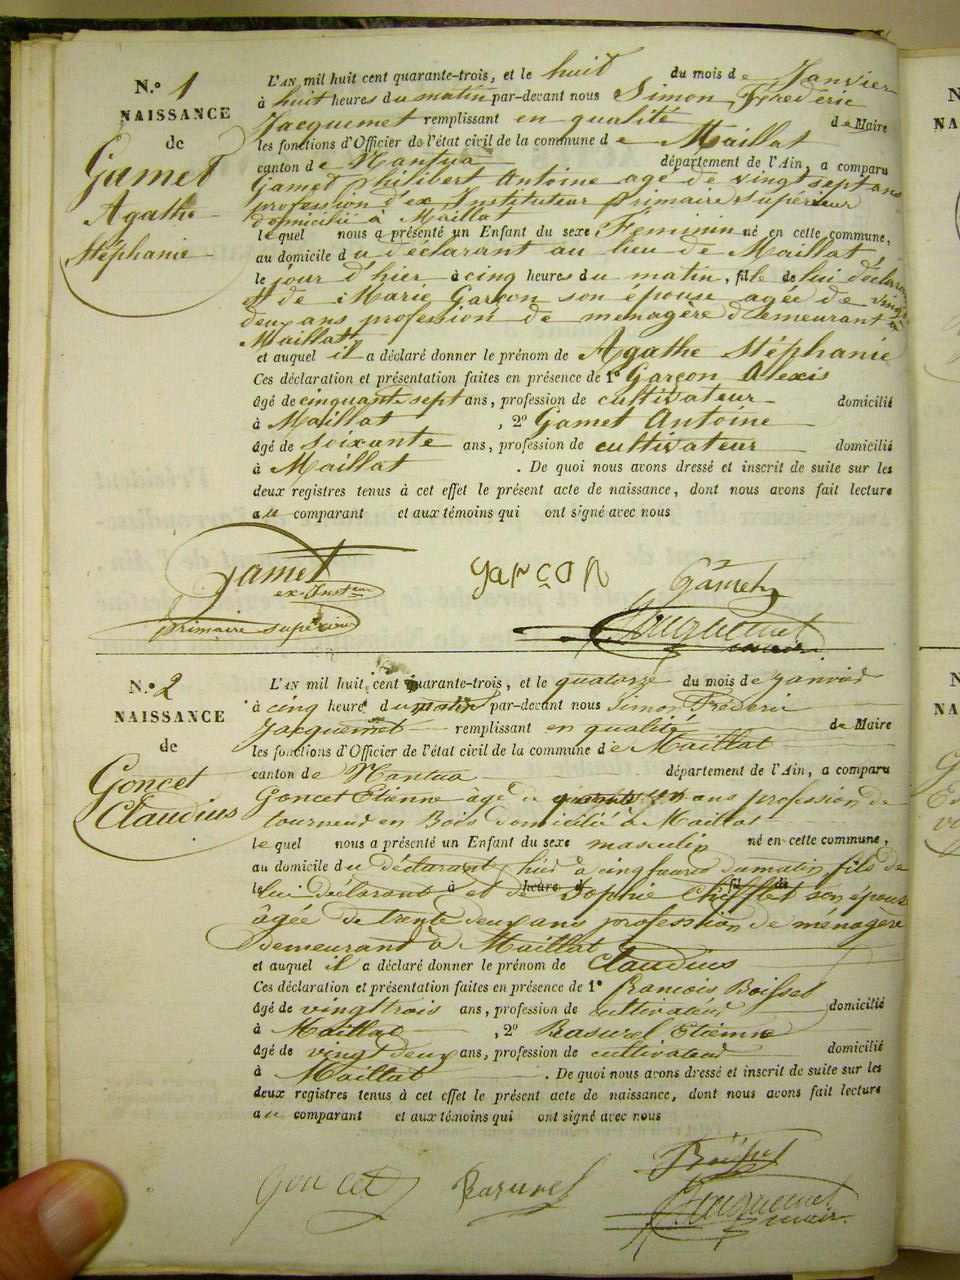 N.° 1
NAISSANCE
de
Gamet
Agathe
Stéphanie
L'AN mil huit cent quarante-trois, et le huit du mois de Janvier
à huit heures du matin par-devant nous Simon Frédéric
Jacquemet remplissant en qualité de Maire
les fonctions d'Officier de l'état civil de la commune de Maillat
canton de Nantua département de l'Ain, a comparu
Gamet Philibert Antoine age de vingt sept ans
profession d'ex Instituteur primaire superieur
domicilié à Maillat
lequel nous a présenté un Enfant du sexe Féminin né en cette commune,
au domicile du déclarant au lieu de Maillat
le jour d'hier à cinq heures du matin, fille de lui déclarant
et de Marie Garçon son épouse agée de vingt
deux ans profession de menagère demeurant à
Maillat
et auquel il a déclaré donner le prénom de Agathe Stéphanie
Ces déclaration et présentation faites en présence de 1° Garçon Alexis
âgé de cinquante sept ans, profession de cultivateur domicilié
à Maillat , 2° Gamet Antoine
âgé de soixante ans, profession de cultivateur domicilié
à Maillat . De quoi nous avons dressé et inscrit de suite sur les
deux registres tenus à cet effet le présent acte de naissance, dont nous avons fait lecture
au comparant et aux témoins qui ont signé avec nous
Gamet garçon Gamet
ex-Inst.eur
primaire supérieur Jacquemet
maire
N.° 2
NAISSANCE
de
Goncet
Claudius
L'AN mil huit cent quarante-trois, et le quatorze du mois de janvier
à cinq heures du matin par-devant nous Simon Fréderic
Jacquemet remplissant en qualité de Maire
les fonctions d'Officier de l'état civil de la commune de Maillat
canton de Nantua département de l'Ain, a comparu
Goncet Etienne âgé de un ans profession de
tourneur en Bois domicilié à Maillat
lequel nous a présenté un Enfant du sexe masculin né en cette commune,
au domicile du déclarant hier à cinq heures du matin fils de
le lui déclarant à et de heure Sophie Chifflet fil de son épouse
âgée de trente deux ans profession de ménagère
demeurant à Maillat
et auquel il a déclaré donner le prénom de Claudius
Ces déclaration et présentation faites en présence de 1° françois Boisset
âgé de vingt trois ans, profession de cultivateur domicilié
à Maillat , 2° Rasurel Etienne
âgé de vingt deux ans, profession de cultivateur domicilié
à Maillat . De quoi nous avons dressé et inscrit de suite sur les
deux registres tenus à cet effet le présent acte de naissance, dont nous avons fait lecture
au comparant et aux témoins qui ont signé avec nous
Boisset
goncet Rasurel Jacquemet
maire